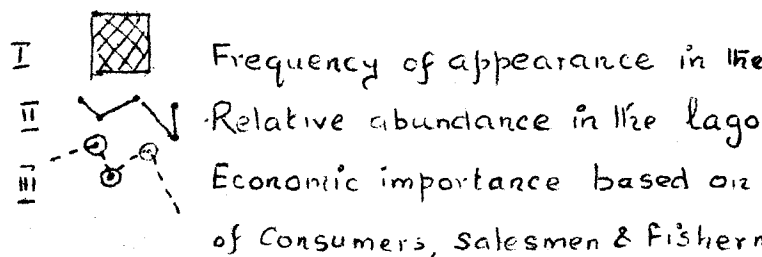 I Frequency of appearance in the
II Relative abundance in the lago
III Economic importance based on
of Consumers, Salesmen & Fisherm